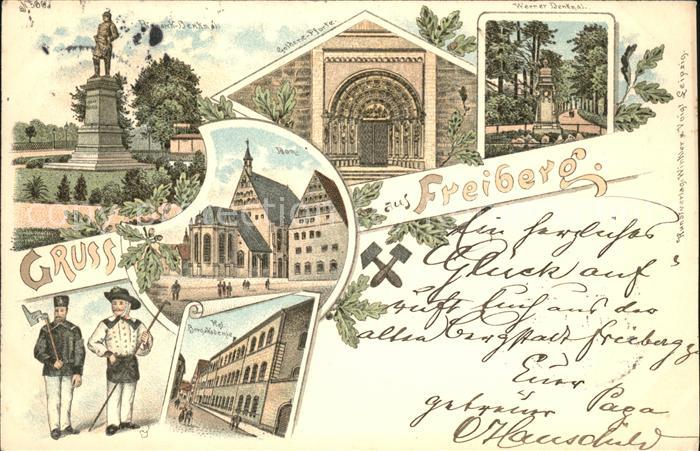 Bismarck-Denkmal.
Goldene-Pforte.
Werner Denkmal.
Dom.
Gruss
aus Freiberg.
Kgl.
Berg-Akademie
Kunstverlag Winkler & Voigt Leipzig.
Ein herzliches
Glück auf
ruft Euch aus der
alten Bergstadt Freiberg zu
Euer
getreuer Papa